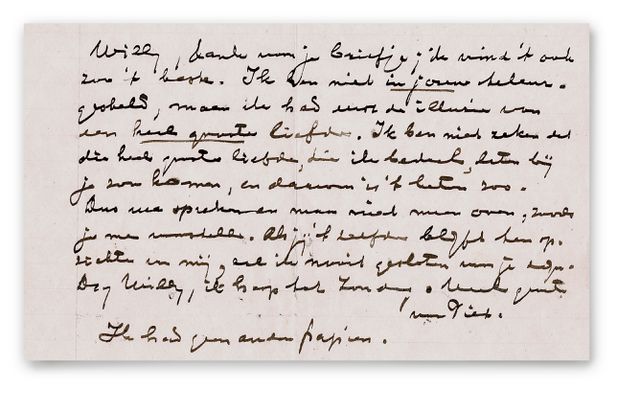 Willy, dank voor je briefje; ik vind 't ook
zoo 't beste. Ik ben niet in jouw teleur-
gesteld, maar ik had eerst de illusie van
een heel groote liefde. Ik ben niet zeker dat
die heel groote liefde, die ik bedoel, later bij
je zou komen, en daarom is 't beter zoo.
Dus we spreken er maar niet meer over, zooals
je me voorstelt. Als jij 't zelfde blijft ten op-
zichte van mij, zal ik nooit gesloten voor je zijn.
Dag Willy, ik hoop tot Zondag. Veel groeten
van Piet.
Ik had geen ander papier.